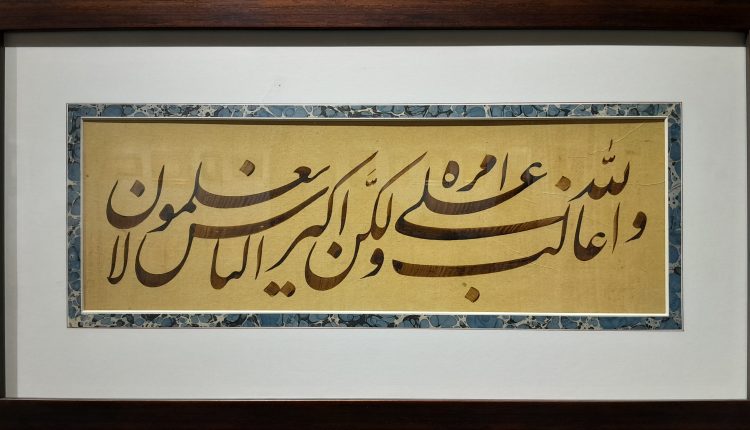 والله غالب على امره ولكن اكثر الناس لا يعلمون